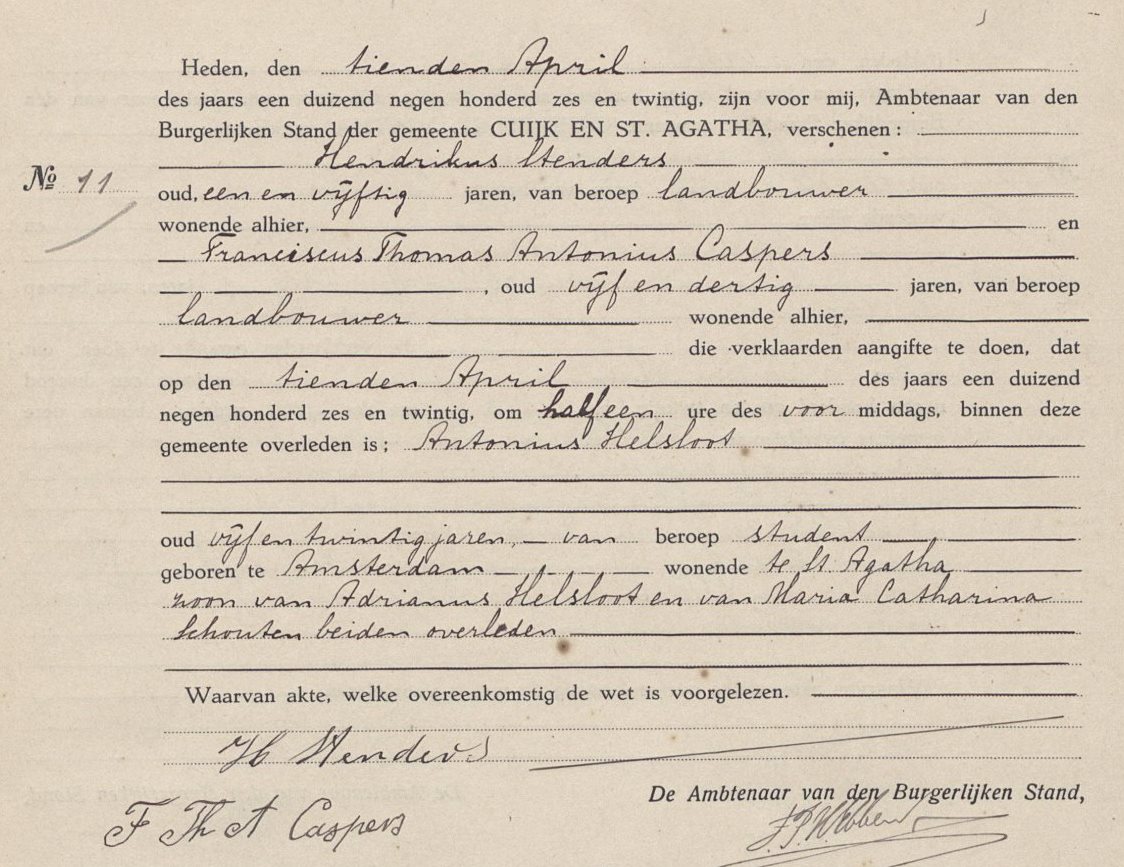 Heden, den tienden April
des jaars een duizend negen honderd zes en twintig, zijn voor mij, Ambtenaar van den
Burgerlijken Stand der gemeente CUIJK EN ST. AGATHA, verschenen:
Hendrikus Stenders
No 11
oud, een en vijftig jaren, van beroep landbouwer
wonende alhier, en
Franciscus Thomas Antonius Caspers
, oud vijf en dertig jaren, van beroep
landbouwer wonende alhier,
die verklaarden aangifte te doen, dat
op den tienden April des jaars een duizend
negen honderd zes en twintig, om half een ure des voor middags, binnen deze
gemeente overleden is; Antonius Helsloot
oud vijf en twintig jaren, van beroep student
geboren te Amsterdam wonende te St Agatha
zoon van Adrianus Helsloot en van Maria Catharina
Schouten beiden overleden
Waarvan akte, welke overeenkomstig de wet is voorgelezen.
H Stenders
De Ambtenaar van den Burgerlijken Stand,
F Th A Caspers